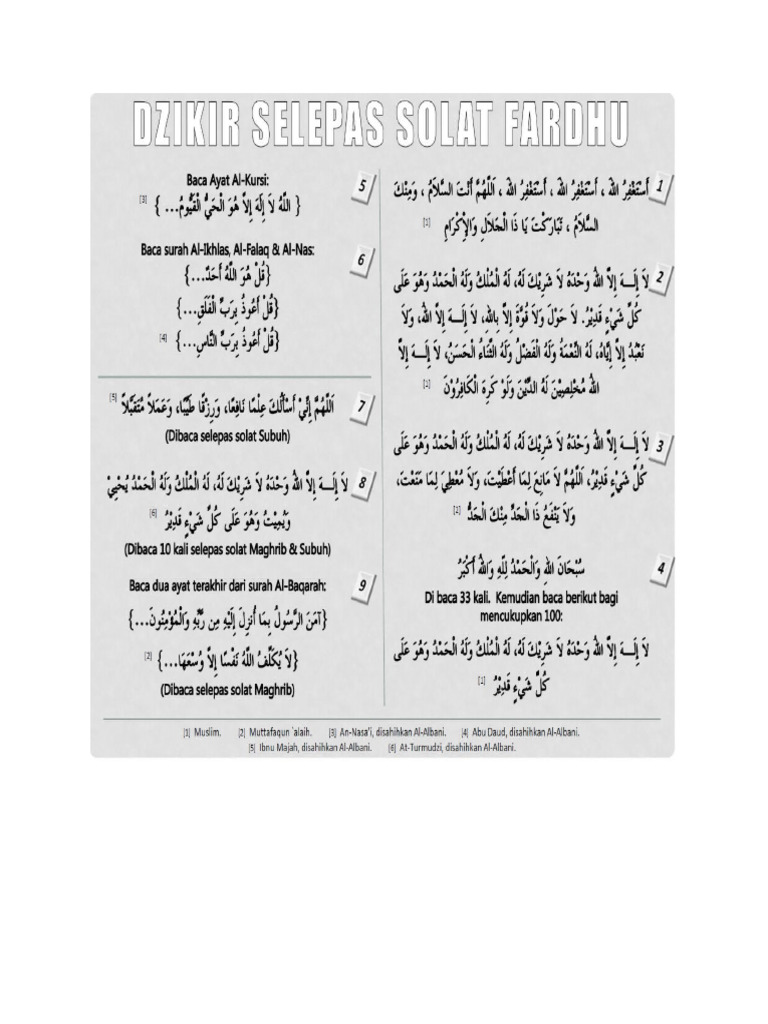 DZIKIR SELEPAS SOLAT FARDHU
1
أَسْتَغْفِرُ اللهَ ، أَسْتَغْفِرُ اللهَ ، أَسْتَغْفِرُ اللهَ ، اَللَّهُمَّ أَنْتَ السَّلاَمُ ، وَمِنْكَ
السَّلاَمُ ، تَبَارَكْتَ يَا ذَا الْجَلاَلِ وَالْإِكْرَامِ [1]
2
لاَ إِلَـــهَ إِلاَّ اللهُ وَحْدَهُ لاَ شَرِيْكَ لَهُ، لَهُ الْمُلْكُ وَلَهُ الْحَمْدُ وَهُوَ عَلَى
كُلِّ شَيْءٍ قَدِيْرُ. لاَ حَوْلَ وَلاَ قُوَّةَ إِلاَّ بِاللهِ، لاَ إِلَـــهَ إِلاَّ اللهُ، وَلاَ
نَعْبُدُ إِلاَّ إِيَّاهُ، لَهُ النِّعْمَةُ وَلَهُ الْفَضْلُ وَلَهُ الثَّنَاءُ الْحَسَنُ، لاَ إِلَـــهَ إِلاَّ
اللهُ مُخْلِصِيْنَ لَهُ الدِّيْنَ وَلَوْ كَرِهَ الْكَافِرُوْنَ [1]
3
لاَ إِلَـــهَ إِلاَّ اللهُ وَحْدَهُ لاَ شَرِيْكَ لَهُ، لَهُ الْمُلْكُ وَلَهُ الْحَمْدُ وَهُوَ عَلَى
كُلِّ شَيْءٍ قَدِيْرُ، اَللَّهُمَّ لاَ مَانِعَ لِمَا أَعْطَيْتَ، وَلاَ مُعْطِيَ لِمَا مَنَعْتَ،
وَلاَ يَنْفَعُ ذَا الْجَدِّ مِنْكَ الْجَدُّ [2]
4
سُبْحَانَ اللهِ وَالْحَمْدُ لِلَّهِ وَاللهُ أَكْبَرُ
Di baca 33 kali. Kemudian baca berikut bagi
mencukupkan 100:
لاَ إِلَـــهَ إِلاَّ اللهُ وَحْدَهُ لاَ شَرِيْكَ لَهُ، لَهُ الْمُلْكُ وَلَهُ الْحَمْدُ وَهُوَ عَلَى
كُلِّ شَيْءٍ قَدِيْرُ [1]
5
Baca Ayat Al-Kursi:
{ اللَّهُ لاَ إِلَهَ إِلاَّ هُوَ الْحَيُّ الْقَيُّومُ... } [3]
6
Baca surah Al-Ikhlas, Al-Falaq & Al-Nas:
{قُلْ هُوَ اللَّهُ أَحَدٌ...}
{قُلْ أَعُوذُ بِرَبِّ الْفَلَقِ...}
{قُلْ أَعُوذُ بِرَبِّ النَّاسِ...} [4]
7
اَللَّهُمَّ إِنِّيْ أَسْأَلُكَ عِلْمًا نَافِعًا، وَرِزْقًا طَيِّبًا، وَعَمَلاً مُتَقَبَّلاً [5]
(Dibaca selepas solat Subuh)
8
لاَ إِلَـــهَ إِلاَّ اللهُ وَحْدَهُ لاَ شَرِيْكَ لَهُ، لَهُ الْمُلْكُ وَلَهُ الْحَمْدُ يُحْيِيْ
وَيُمِيْتُ وَهُوَ عَلَى كُلِّ شَيْءٍ قَدِيْرُ [6]
(Dibaca 10 kali selepas solat Maghrib & Subuh)
9
Baca dua ayat terakhir dari surah Al-Baqarah:
{آمَنَ الرَّسُولُ بِمَا أُنزِلَ إِلَيْهِ مِن رَّبِّهِ وَالْمُؤْمِنُونَ...}
{لاَ يُكَلِّفُ اللَّهُ نَفْسًا إِلاَّ وُسْعَهَا...} [2]
(Dibaca selepas solat Maghrib)
[1] Muslim. [2] Muttafaqun `alaih. [3] An-Nasa'i, disahihkan Al-Albani. [4] Abu Daud, disahihkan Al-Albani.
[5] Ibnu Majah, disahihkan Al-Albani. [6] At-Turmudzi, disahihkan Al-Albani.